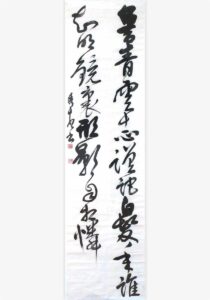 昔青雲志蹉跎白髮年誰
知明鏡裏形影自相憐